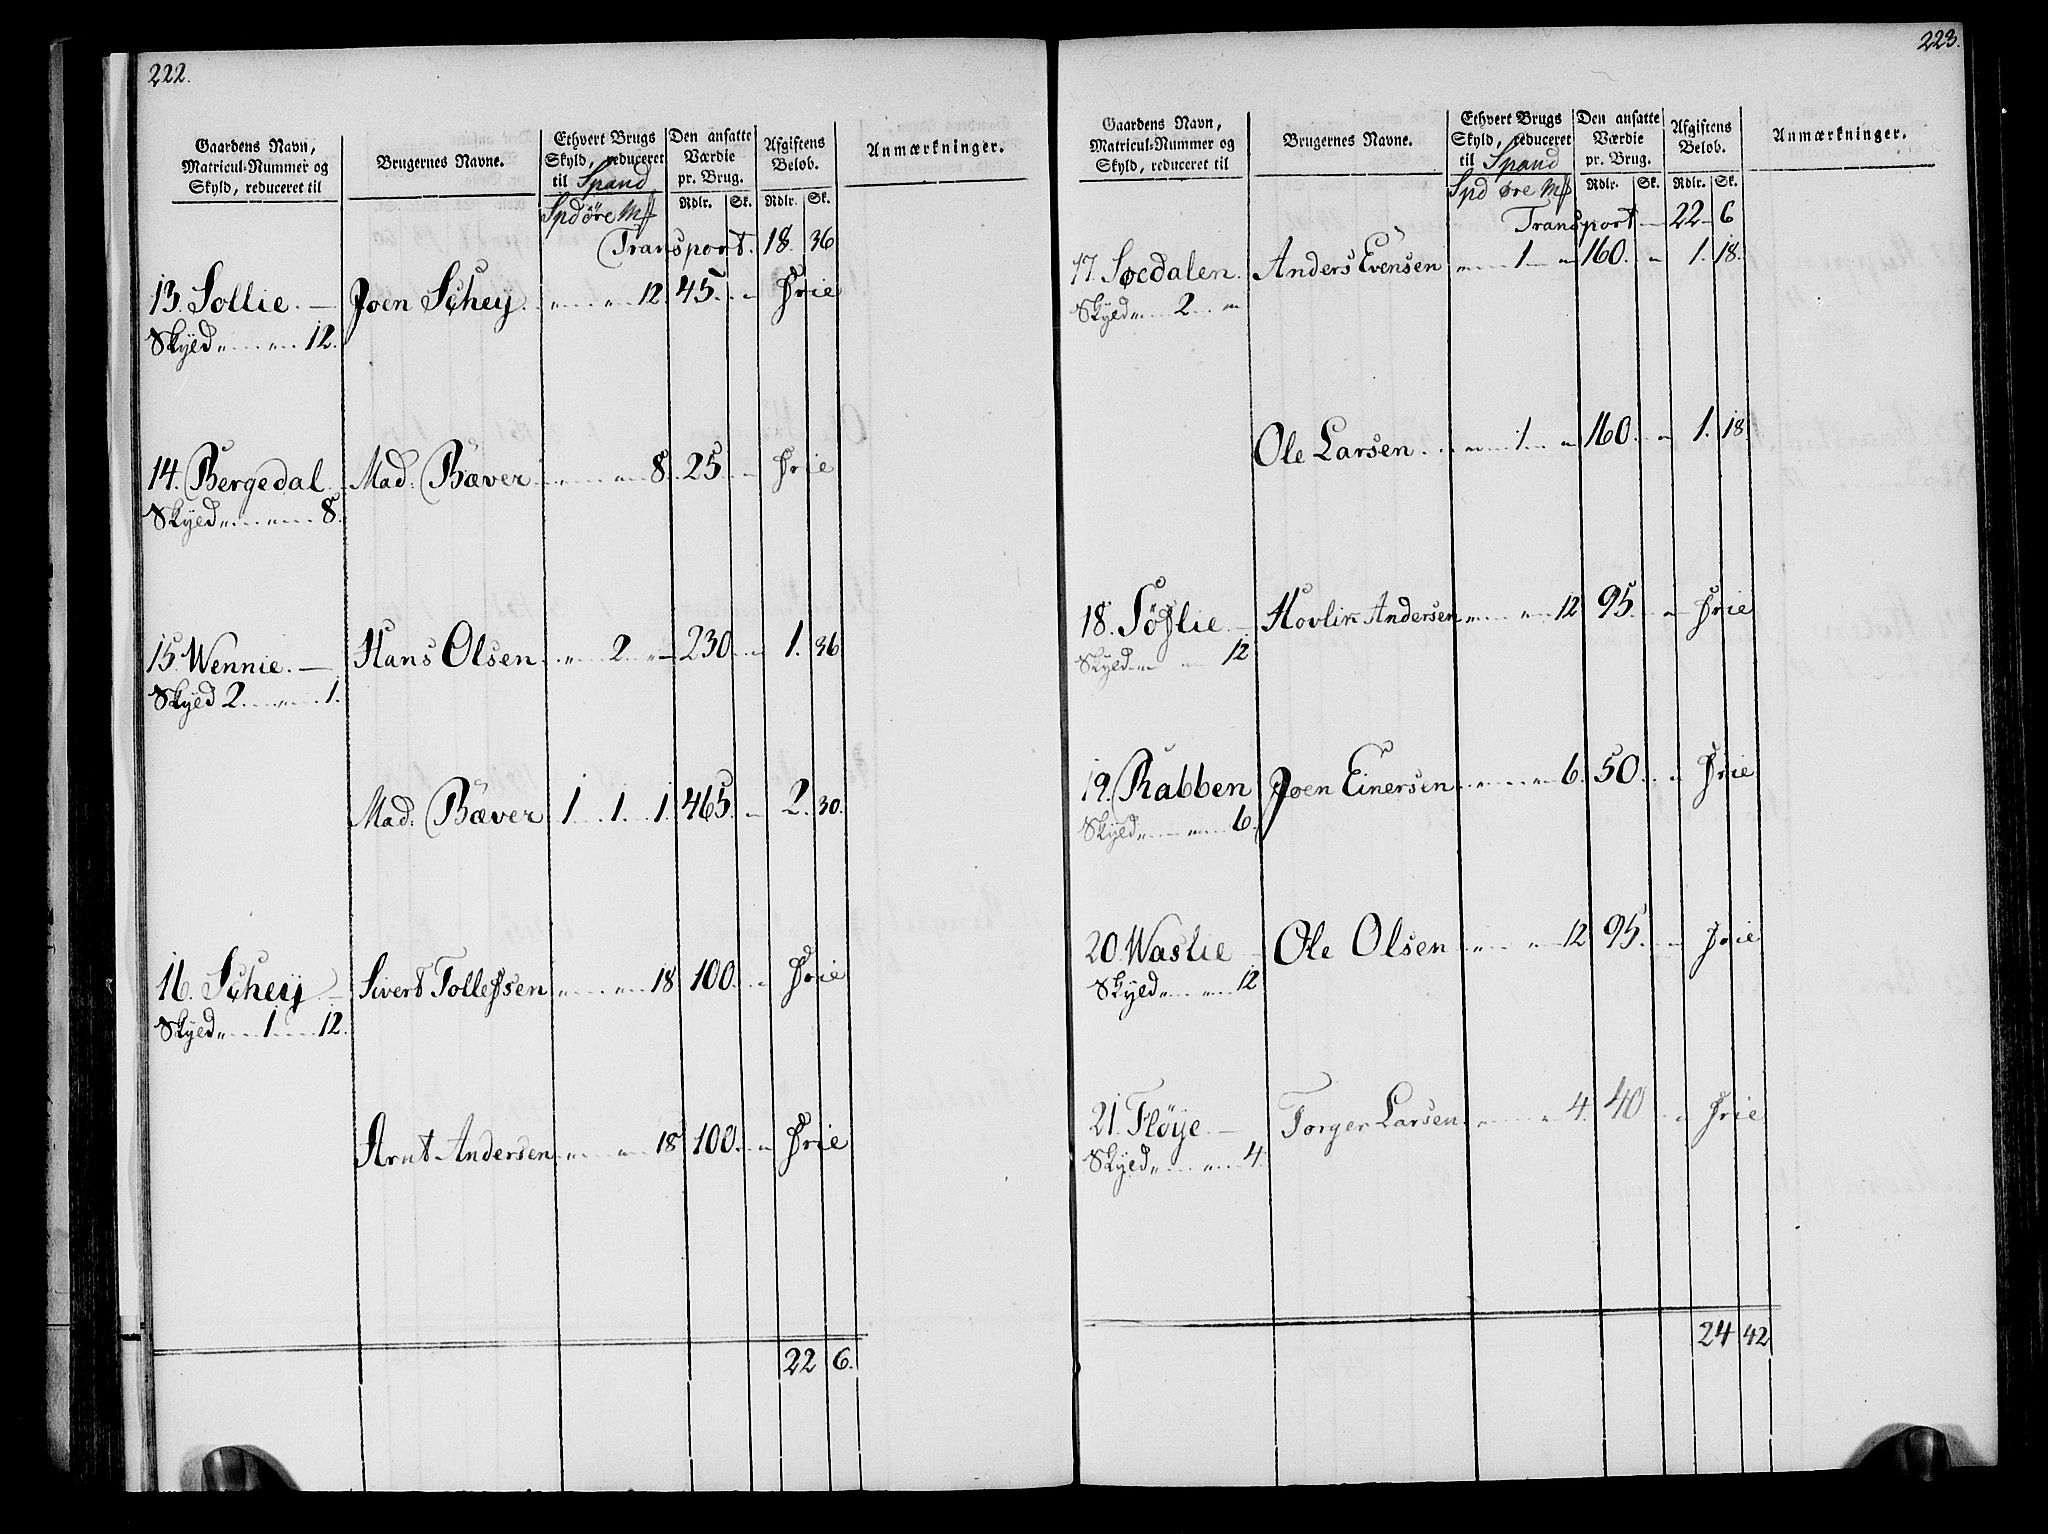 222.
Gaardens Navn, Matricul-Nummer og Skyld, reduceret til
Brugernes Navne.
Ethvert Brugs Skyld, reduceret til Spand
Den ansatte Værdie pr. Brug.
Afgiftens Beløb.
Anmærkninger.
Spd øre M₰ Rdlr. Sk. Rdlr. Sk.
Transport. 18. 36
13. Sollie. — Joen Schey „ „ 12 45 „ Frie
Skyld „ „ 12.
14. Bergedal Mad. Bæver „ „ 8. 25 „ Frie
Skyld „ „ 8.
15. Wennie. — Hans Olsen „ 2. „ 230 „ 1. 36
Skyld 2. „ 1.
Mad. Bæver 1 1. 1. 465 „ 2. 30.
16. Schey. — Sivert Tollefsen „ „ 18 100. „ Frie
Skyld „ 1 12.
Arnt Andersen „ „ 18 100. „ Frie
22 6.
223.
Gaardens Navn, Matricul-Nummer og Skyld, reduceret til
Brugernes Navne.
Ethvert Brugs Skyld, reduceret til Spand
Den ansatte Værdie pr. Brug.
Afgiftens Beløb.
Anmærkninger.
Spd øre M₰ Rdlr. Sk. Rdlr. Sk.
Transport — 22 — 6
17. Soedalen. Anders Evensen „ 1 „ 160. „ 1. 18.
Skyld „ 2 „
Ole Larsen „ 1 „ 160. „ 1. 18.
18. Söflie — Hovlik Andersen „ „ 12 95. „ Frie
Skyld „ „ 12
19. Rabben Joen Einersen „ „ 6. 50. „ Frie
Skyld „ „ 6.
20. Waslie — Ole Olsen „ „ 12 95. „ Frie
Skyld „ „ 12
21. Fløye — Torger Larsen „ „ 4. 40 „ Frie
Skyld „ „ 4.
24 42